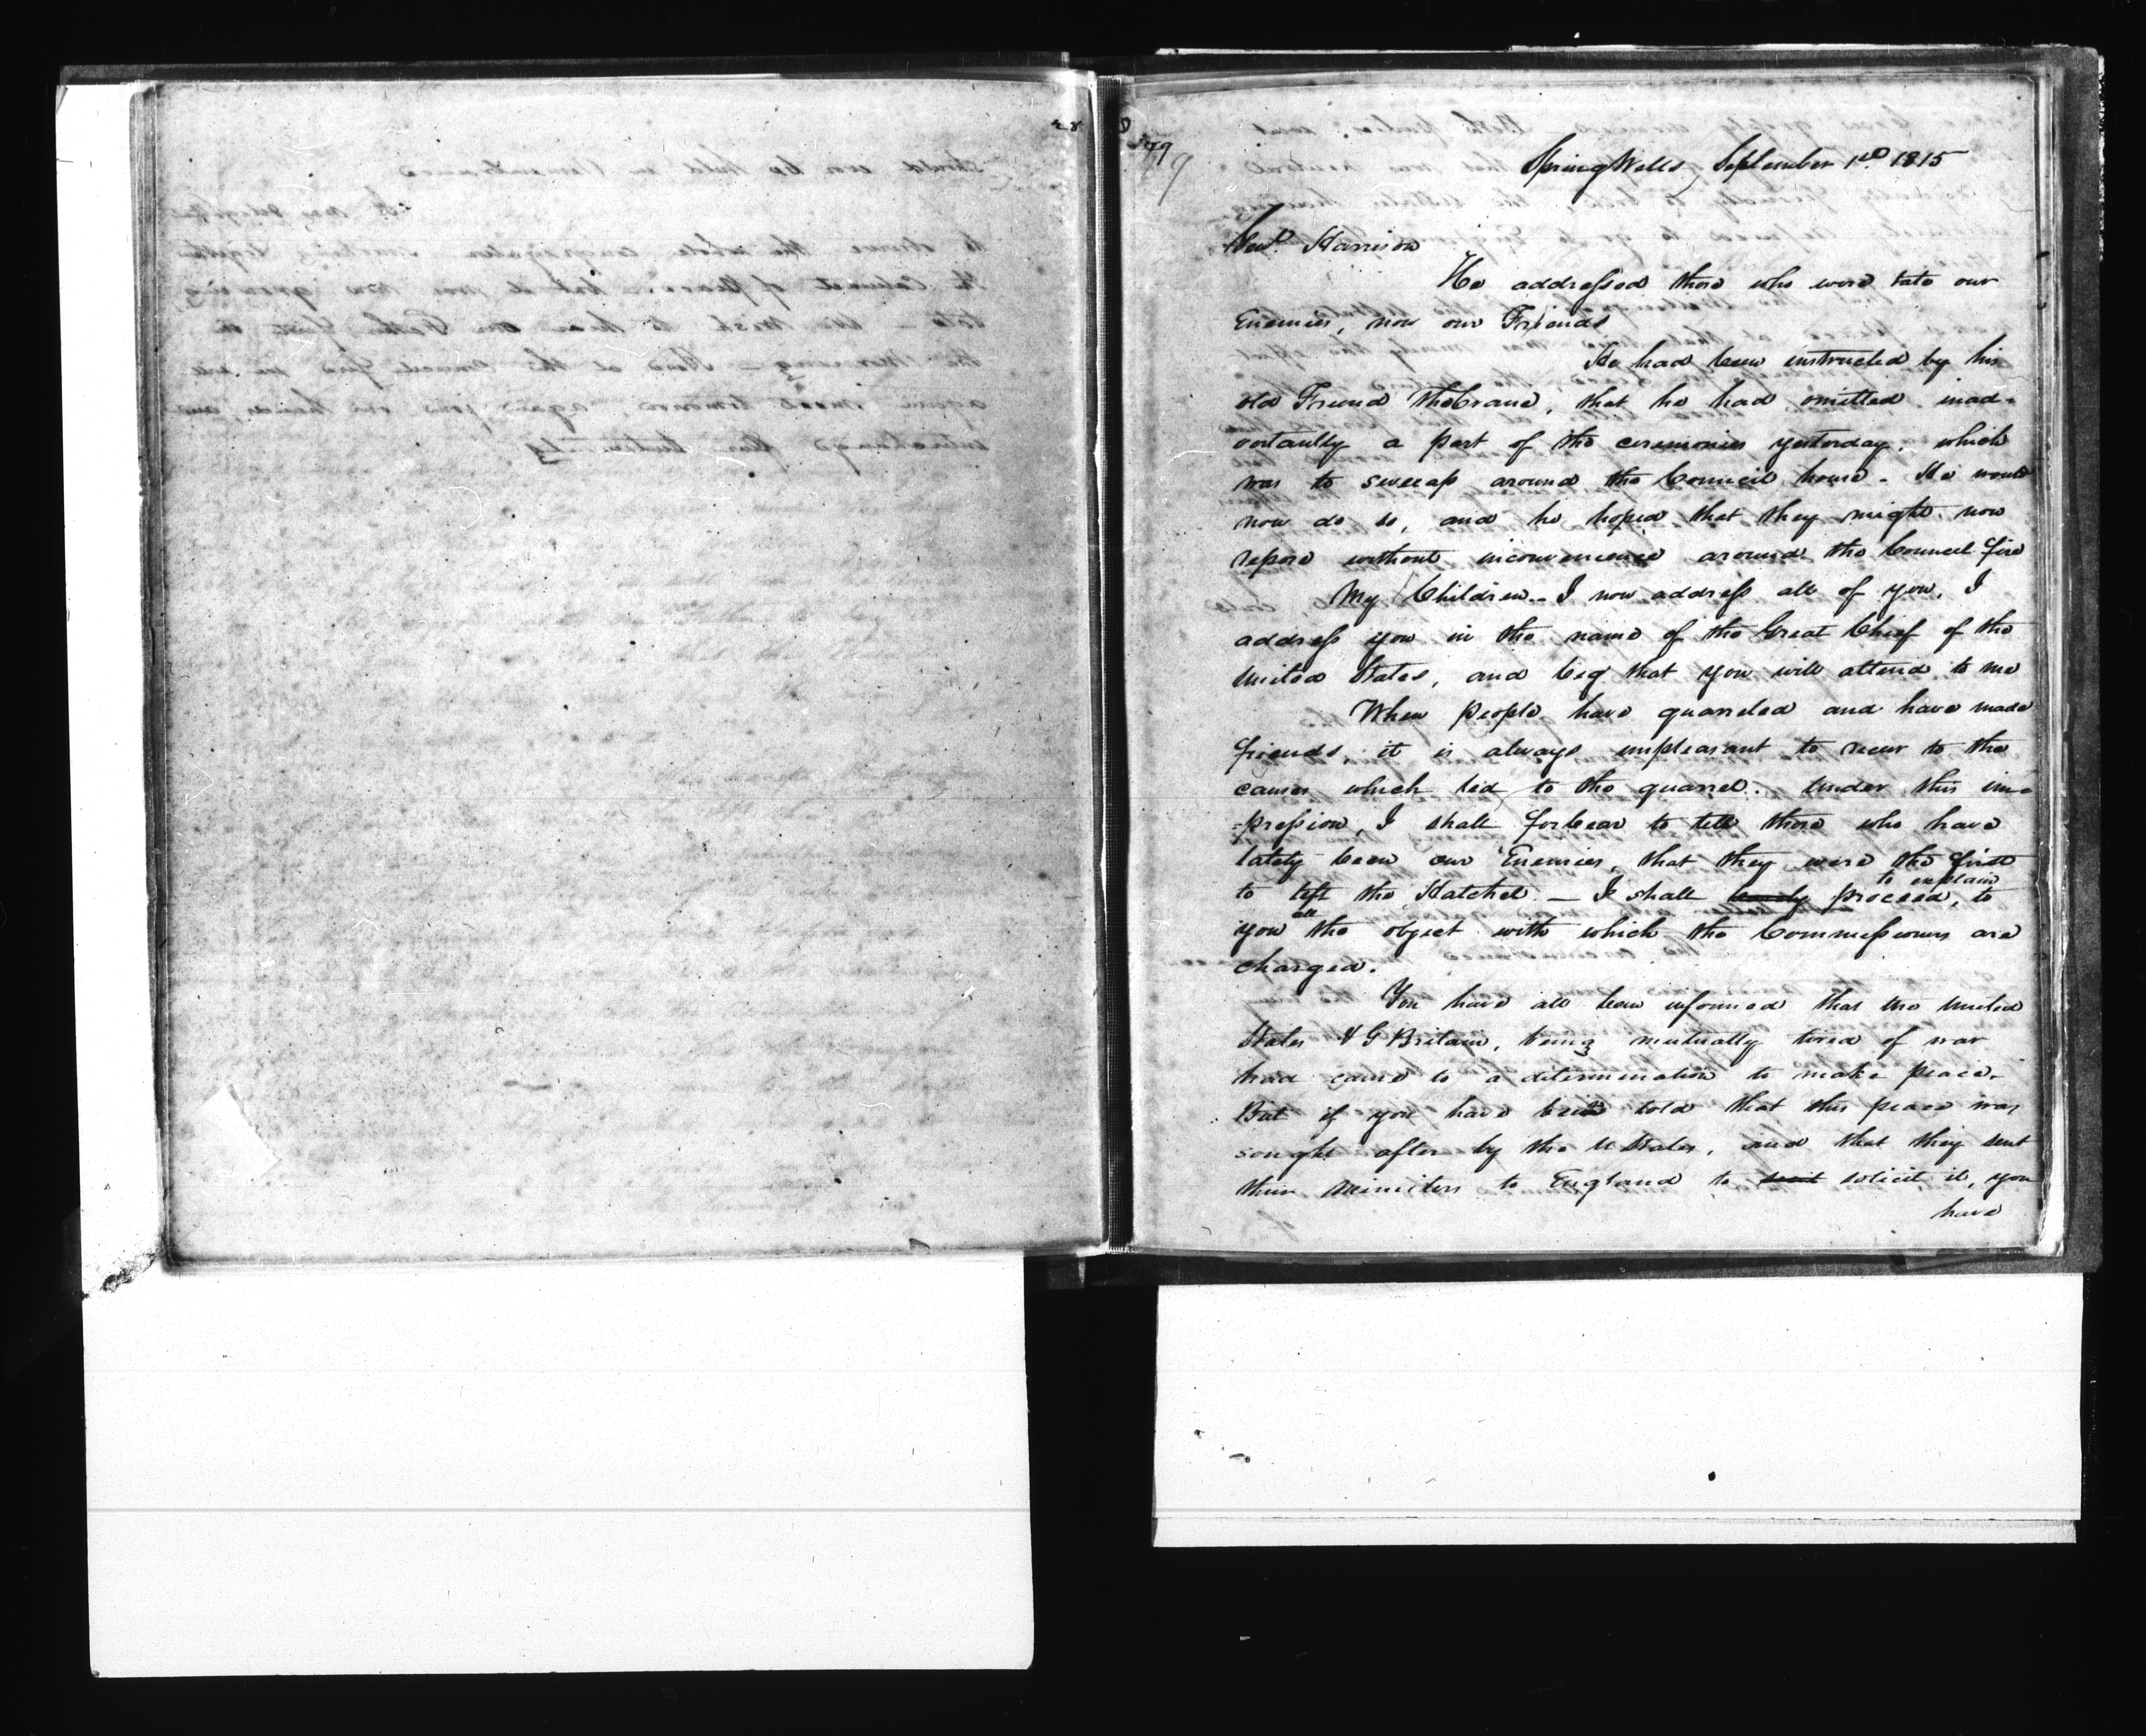 28
79
Spring Wells, September 1st 1815
Genl. Harrison
He addressed those who were late our
Enemies, now our Friends
He had been instructed by his
old Friend the Crane, that he had omitted inad-
vertantly a part of the ceremonies yesterday, which
was to sweep around the Council house. He would
now do so, and he hoped that they might now
repose without inconvenience around the Council fire
My Children – I now address all of you, I
address you in the name of the Great Chief of the
United States, and beg that you will attend to me
When people have quarreled and have made
friends, it is always unpleasant to recur to the
causes which led to the quarrel. Under this im-
-pression, I shall forbear to tell those who have
lately been our Enemies, that they were the first
to lift the Hatchet. — I shall proceed, to explain to
you all the object with which the Commissioners are
charged.
You have all been informed that the United
States & G Britain, being mutually tired of war
had came to a determination to make peace.
But if you have been told that this peace was
sought after by the U States, and that they sent
their ministers to England to solicit it, you
have